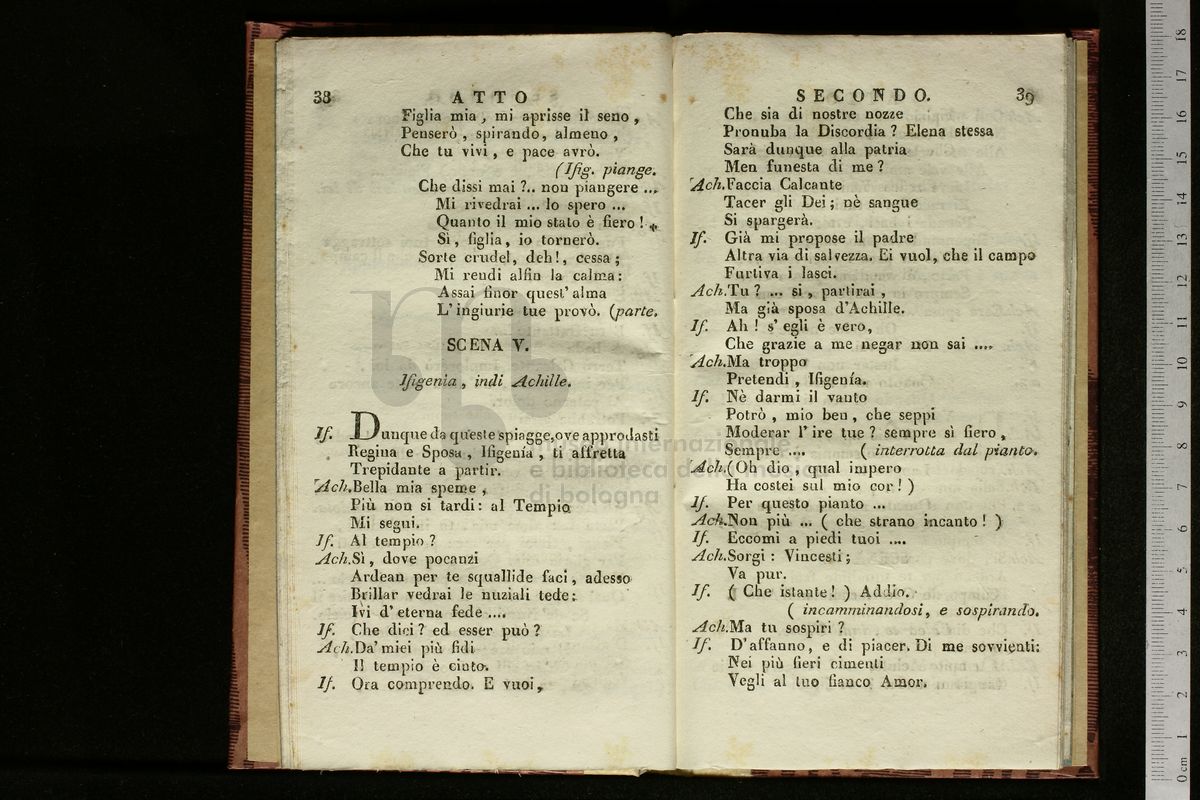 38 ATTO
Figlia mia, mi aprisse il seno,
Penserò, spirando, almeno,
Che tu vivi, e pace avrò.
(Ifig. piange.
Che dissi mai ?.. non piangere ...
Mi rivedrai ... lo spero ...
Quanto il mio stato è fiero!
Sì, figlia, io tornerò.
Sorte crudel, deh!, cessa;
Mi rendi alfin la calma:
Assai finor quest' alma
L' ingiurie tue provò. (parte.
SCENA V.
Ifigenia, indi Achille.
If. Dunque da queste spiagge, ove approdasti
Regina e Sposa, Ifigenía, ti affretta
Trepidante a partir.
Ach. Bella mia speme,
Più non si tardi: al Tempio
Mi segui.
If. Al tempio?
Ach. Sì, dove pocanzi
Ardean per te squallide faci, adesso
Brillar vedrai le nuziali tede:
Ivi d' eterna fede ....
If. Che dici? ed esser può?
Ach. Da' miei più fidi
Il tempio è cinto.
If. Ora comprendo. E vuoi,
SECONDO. 39
Che sia di nostre nozze
Pronuba la Discordia? Elena stessa
Sarà dunque alla patria
Men funesta di me?
Ach. Faccia Calcante
Tacer gli Dei; nè sangue
Si spargerà.
If. Già mi propose il padre
Altra via di salvezza. Ei vuol, che il campo
Furtiva i lasci.
Ach. Tu? ... si, partirai,
Ma già sposa d'Achille.
If. Ah! s' egli è vero,
Che grazie a me negar non sai ....
Ach. Ma troppo
Pretendi, Ifigenía.
If. Nè darmi il vanto
Potrò, mio ben, che seppi
Moderar l' ire tue? sempre sì fiero,
Sempre .... ( interrotta dal pianto.
Ach. (Oh dio, qual impero
Ha costei sul mio cor!)
If. Per questo pianto ...
Ach. Non più ... ( che strano incanto! )
If. Eccomi a piedi tuoi ....
Ach. Sorgi: Vincesti;
Va pur.
If. ( Che istante! ) Addio.
( incamminandosi, e sospirando.
Ach. Ma tu sospiri?
If. D'affanno, e di piacer. Di me sovvienti:
Nei più fieri cimenti
Vegli al tuo fianco Amor.
museo internazionale
e biblioteca della musica
di bologna
0 cm 1 2 3 4 5 6 7 8 9 10 11 12 13 14 15 16 17 18